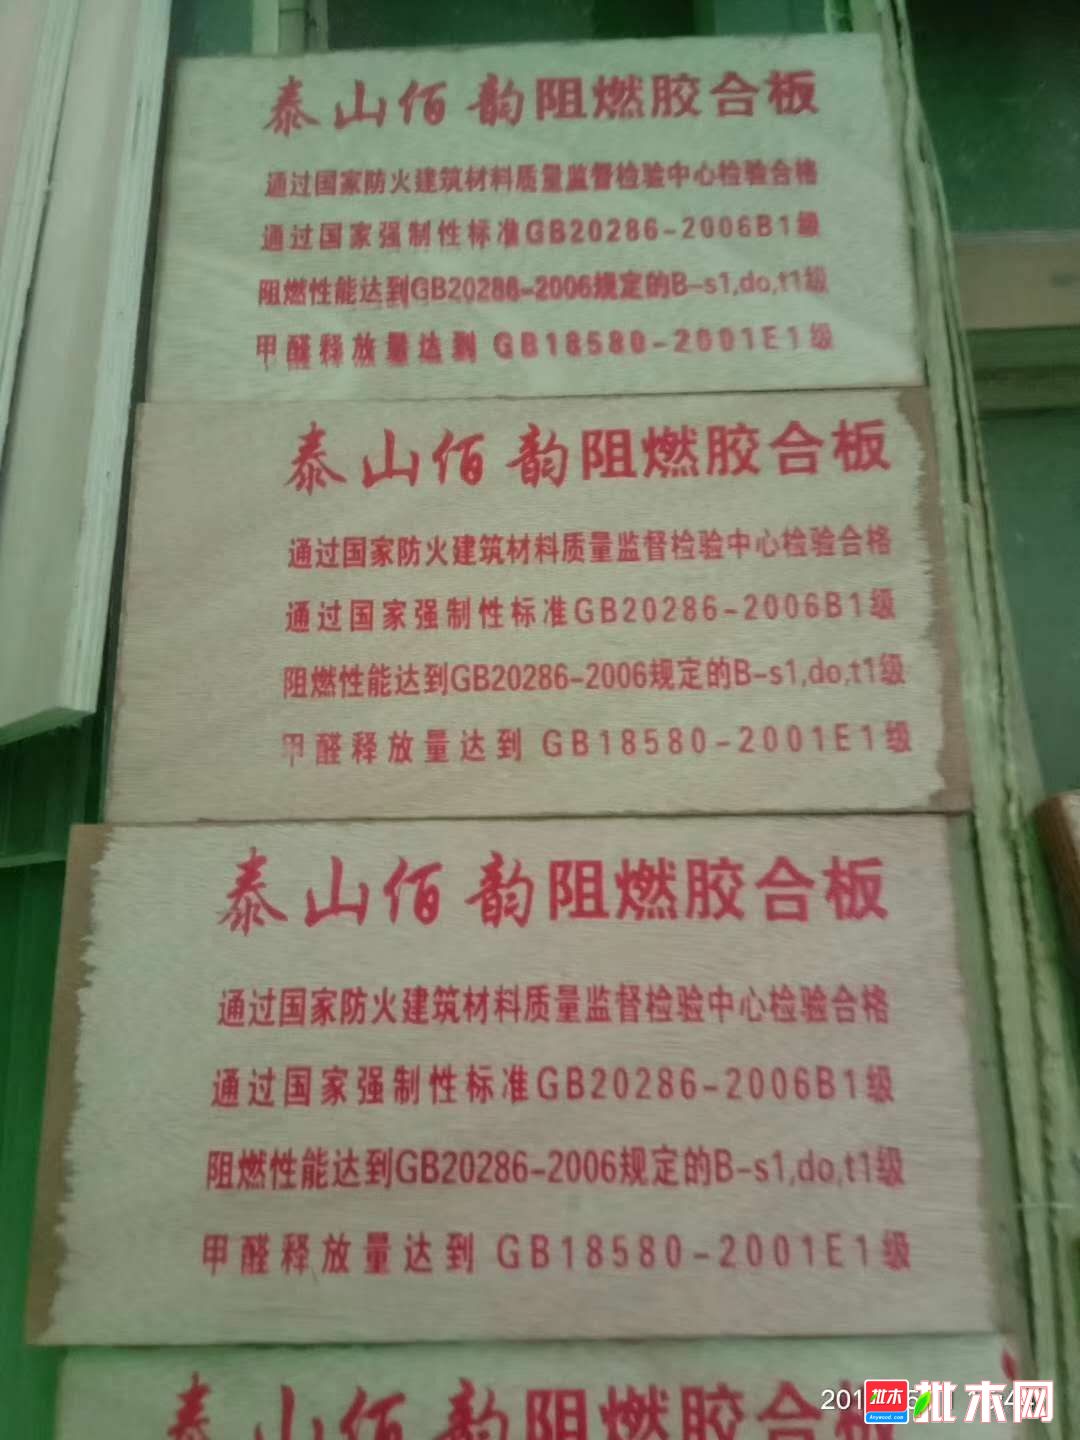 泰山佰韵阻燃胶合板
通过国家防火建筑材料质量监督检验中心检验合格
通过国家强制性标准GB20286-2006B1级
阻燃性能达到GB20286-2006规定的B-s1,do,t1级
甲醛释放量达到 GB18580-2001E1级
泰山佰韵阻燃胶合板
通过国家防火建筑材料质量监督检验中心检验合格
通过国家强制性标准GB20286-2006B1级
阻燃性能达到GB20286-2006规定的B-s1,do,t1级
甲醛释放量达到 GB18580-2001E1级
泰山佰韵阻燃胶合板
通过国家防火建筑材料质量监督检验中心检验合格
通过国家强制性标准GB20286-2006B1级
阻燃性能达到GB20286-2006规定的B-s1,do,t1级
甲醛释放量达到 GB18580-2001E1级
泰山佰韵阻燃胶合板
批木
Anywood.com
批木网